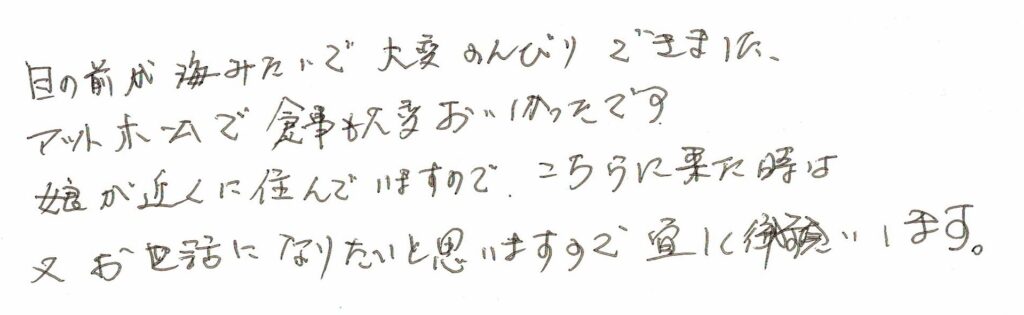 目の前が海みたいで大変のんびりできました、
アットホームで食事も大変おいしかったです
娘が近くに住んでいますので、こちらに来た時は
又お世話になりたいと思いますので宜しく御願いします。